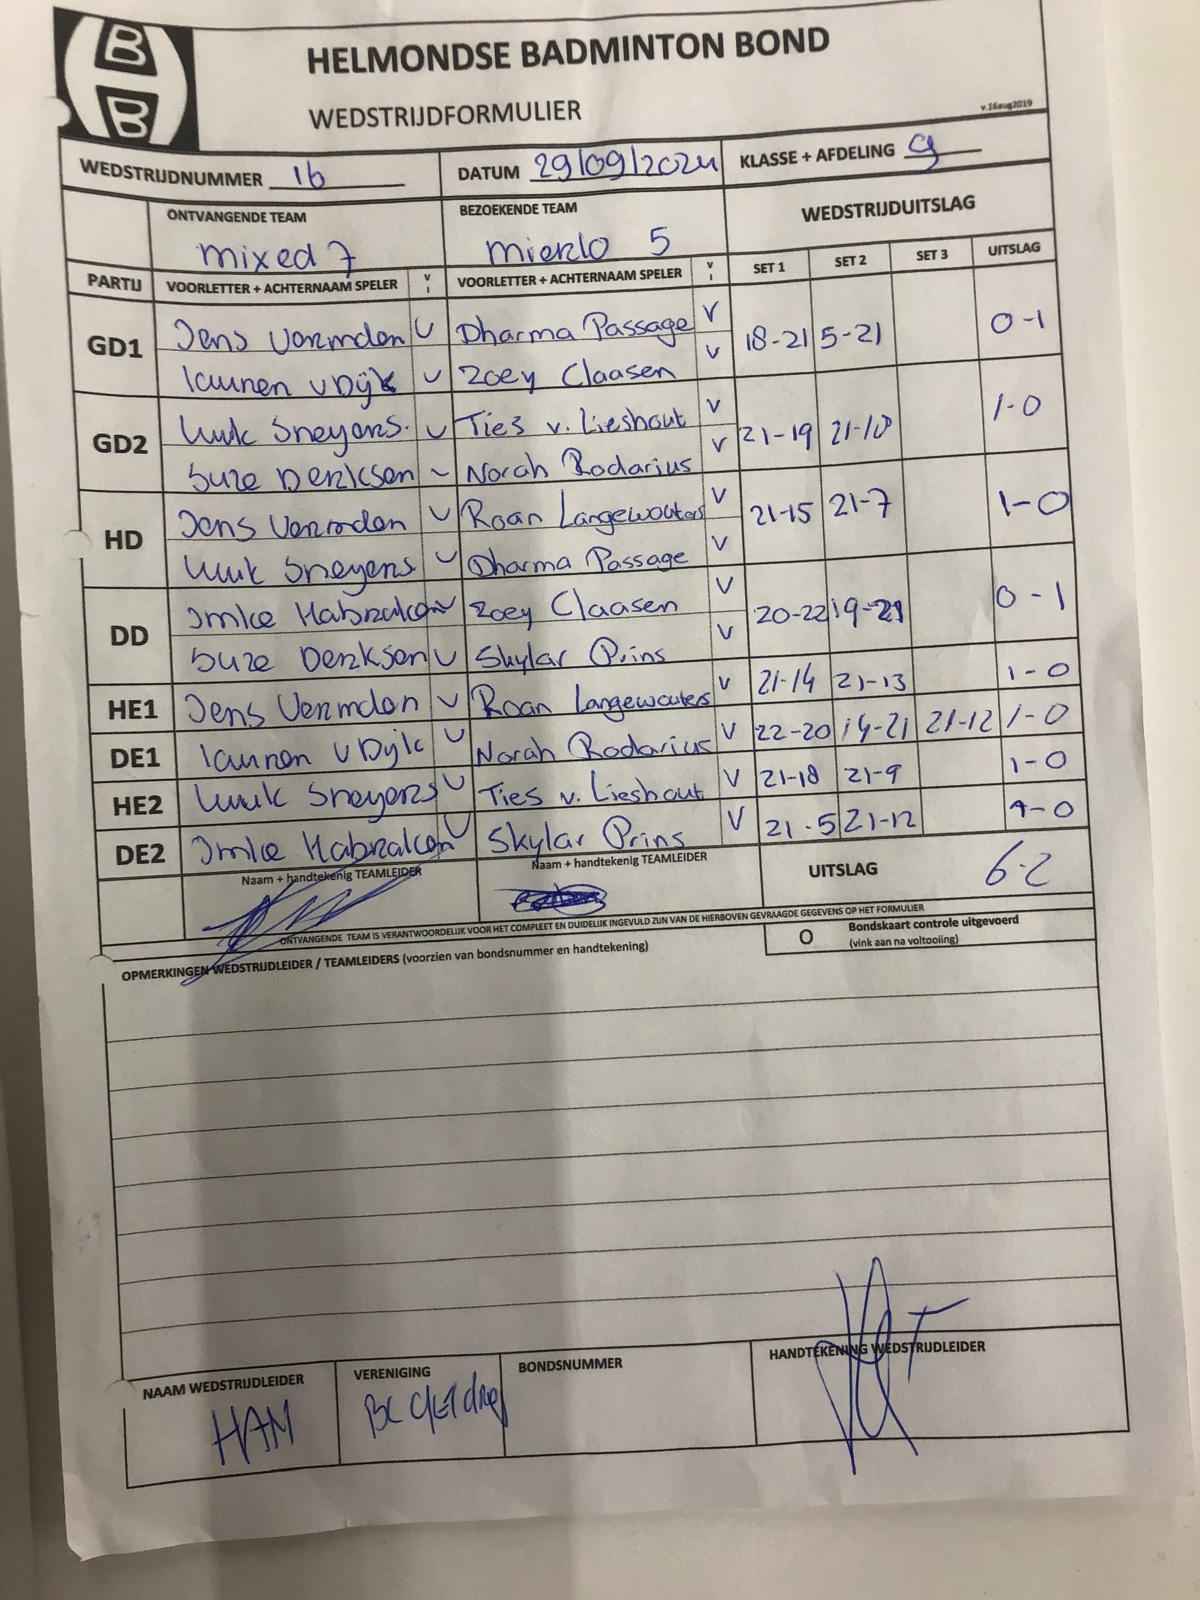 B
B
HELMONDSE BADMINTON BOND
WEDSTRIJDFORMULIER
v.16aug2019
WEDSTRIJDNUMMER 16 DATUM 29/09/2024 KLASSE + AFDELING g
ONTVANGENDE TEAM BEZOEKENDE TEAM WEDSTRIJDUITSLAG
mixed 7 mierlo 5
PARTIJ VOORLETTER + ACHTERNAAM SPELER V I VOORLETTER + ACHTERNAAM SPELER V I SET 1 SET 2 SET 3 UITSLAG
GD1 Jens Vermdon V Dharma Passage V 18-21 5-21 0-1
laurien v Dijk V Zoey Claasen V
GD2 Luuk Sneyers. V Ties v. Lieshout V 21-19 21-18 1-0
Suze Derksen V Norah Rodarius V
HD Jens Vermdon V Roan Langewouters V 21-15 21-7 1-0
Luuk Sneyers V Dharma Passage V
DD Imke Habraken V Zoey Claasen V 20-22 19-21 0-1
Suze Derksen V Skylar Prins V
HE1 Jens Vermdon V Roan Langewouters V 21-14 21-13 1-0
DE1 laurien v Dijk V Norah Rodarius V 22-20 14-21 21-12 1-0
HE2 Luuk Sneyers V Ties v. Lieshout V 21-18 21-9 1-0
DE2 Imke Habraken V Skylar Prins V 21-5 21-12 1-0
Naam + handtekenig TEAMLEIDER Naam + handtekenig TEAMLEIDER UITSLAG 6-2
ONTVANGENDE TEAM IS VERANTWOORDELIJK VOOR HET COMPLEET EN DUIDELIJK INGEVULD ZIJN VAN DE HIERBOVEN GEVRAAGDE GEGEVENS OP HET FORMULIER
OPMERKINGEN WEDSTRIJDLEIDER / TEAMLEIDERS (voorzien van bondsnummer en handtekening)
O Bondskaart controle uitgevoerd
(vink aan na voltooiing)
NAAM WEDSTRIJDLEIDER VERENIGING BONDSNUMMER HANDTEKENING WEDSTRIJDLEIDER
HAM BC